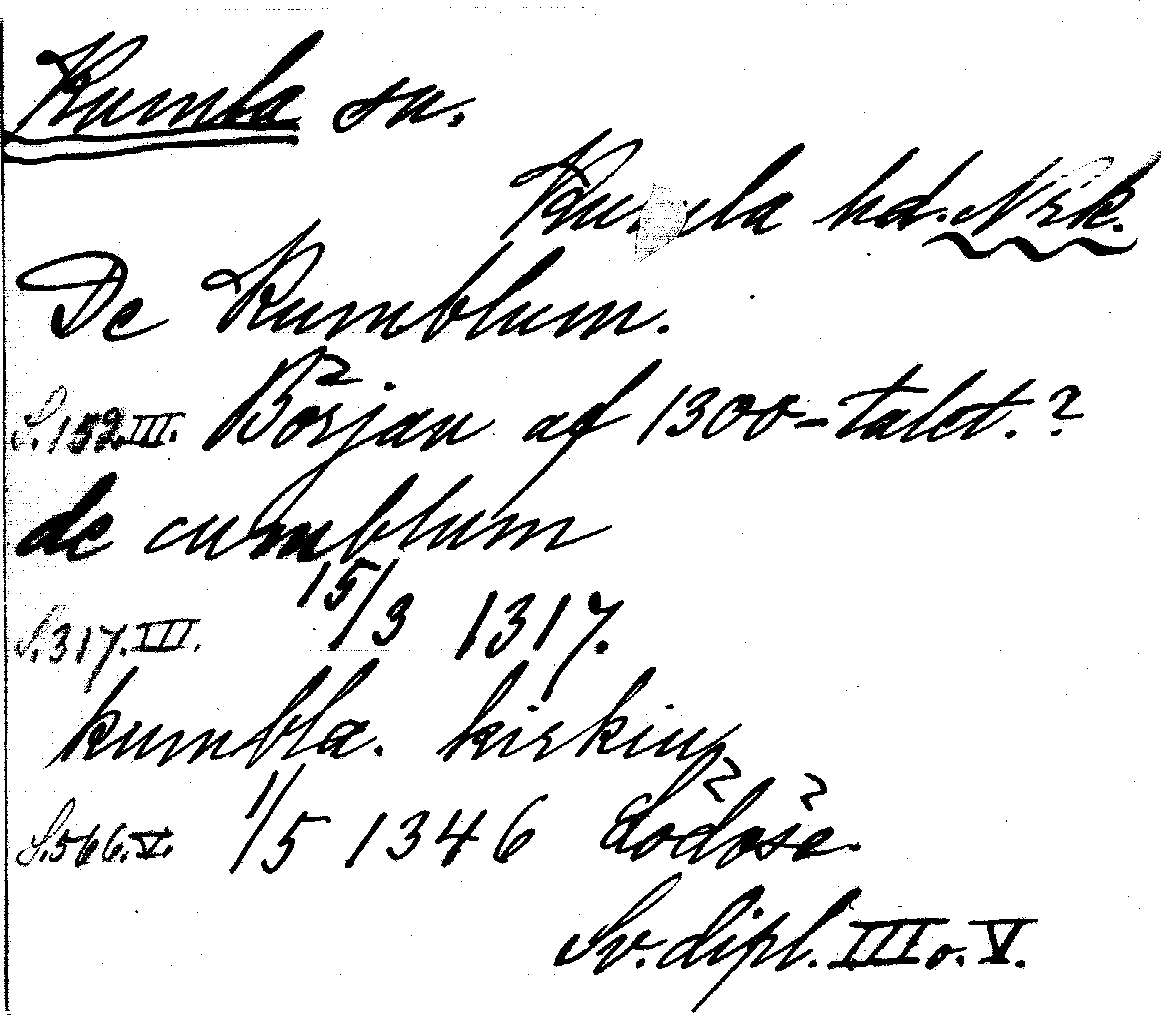 Kumla sn.
Kumla hd. Nrk.
De Kumblum.
S. 152. III. Början af 1300-talet.?
de cumblum
S. 317. III. 15/3 1317.
kumbla. kirkiu
S. 566. V. 1/5 1346 Lödöse.
Sv. dipl. III o. V.